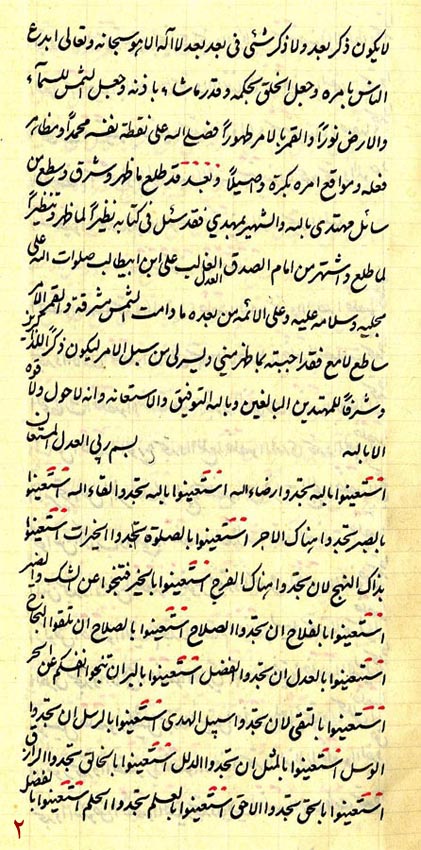 لایکون ذکر بعد ولا ذکر شئی فی بعد بعد لا اله الا هو سبحانه وتعالی ابدع
الناس بامره وجعل الخلق بحکمه وقدر ماشاء باذنه وجعل الشمس للسمآء
والارض نوراً والقمر بالامر طهوراً فصلی الله علی نقطة نفسه محمداً ومظاهر
فعله ومواقع امره بکرة واصیلاً وبعد قد طلع ماظهر وشرق وسطع من
سائل مهتدی بالله والشهیر بمهدی فقد سئل فی کتابه نظیراً لماظهر وتنظیراً
لما طلع واشتهر من امام الصدق الغالب علی ابن ابیطالب صلوات الله علی
العدل
محبیه وسلامه علیه وعلی الائمه من بعده مادامت الشمس مشرقة والقمر الامر
ساطع لامع فقد اجبته بماظهر منی ویسر لی من سبل الامر لیکون ذکراً للذاکرین
وشرفاً للمهتدین البالغین وبالله التوفیق والاستعانه وانه لاحول ولا قوة
الا بالله بسم ربی العدل المستعان
استعینوا بالله تجدوا رضاء الله استعینوا بالله تجدوا لقاء الله استعینوا
بالصبر تجدوا هناک الاجر استعینوا بالصلوة تجدوا الخیرات استعینوا
بذاک النهج لان تجدوا هناک الفرج استعینوا بالخیر فتنجوا عن الشک والضیر
استعینوا بالفلاح ان تجدوا الصلاح استعینوا بالصلاح ان تلقوا النجاح
استعینوا بالعدل ان تجدوا الفضل استعینوا بالبر ان تنجوا انفسکم عن الحر
استعینوا بالتقی لان تجدوا سبیل الهدی استعینوا بالرسل ان تجدوا
الوسل استعینوا بالمثل ان تجدوا الدلل استعینوا بالخالق تجدوا الرازق
استعینوا بالحق تجدوا الاحق استعینوا بالعلم تجدوا الحلم استعینوا بالفضل
۲